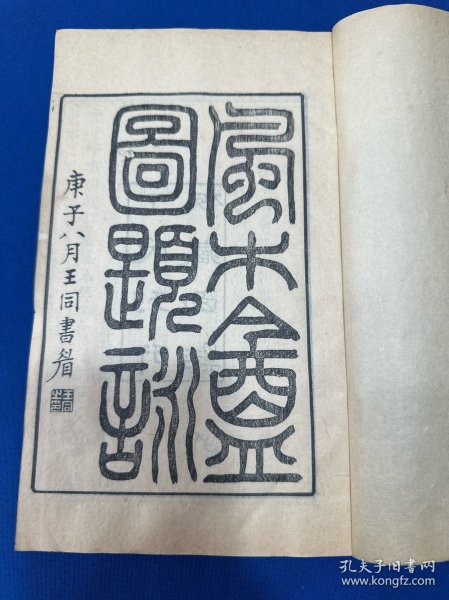 風木盦
圖題詠
庚子八月王同書
孔夫子旧书网
www.kongfz.com